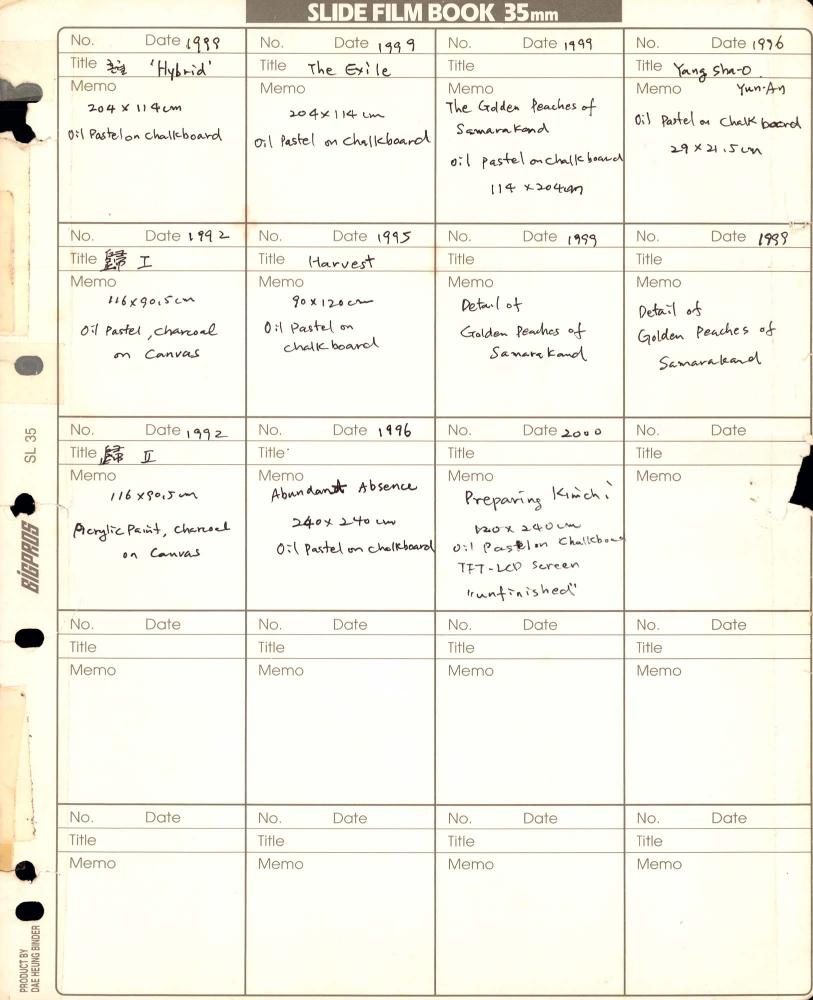 SLIDE FILM BOOK 35mm
No. Date 1999
Title 'Hybrid'
Memo
204 x 114 cm
Oil Pastel on chalkboard
No. Date 1999
Title The Exile
Memo
204 x 114 cm
Oil Pastel on Chalkboard
No. Date 1999
Title
Memo
The Golden Peaches of
Samarakand
Oil pastel on chalkboard
114 x 204cm
No. Date 1996
Title Yang Sha-O
Memo Yun-An
Oil Pastel on Chalk board
29 x 21.5 cm
No. Date 1992
Title 歸 I
Memo
116 x 90.5 cm
Oil Pastel, charcoal
on Canvas
No. Date 1995
Title Harvest
Memo
90 x 120 cm
Oil Pastel on
chalkboard
No. Date 1999
Title
Memo
Detail of
Golden Peaches of
Samarakand
No. Date 1999
Title
Memo
Detail of
Golden Peaches of
Samarakand
No. Date 1992
Title 歸 II
Memo
116 x 90.5 cm
Acrylic Paint, charcoal
on Canvas
No. Date 1996
Title
Memo
Abundant Absence
240 x 240 cm
Oil Pastel on chalkboard
No. Date 2000
Title
Memo
Preparing Kimchi
120 x 240 cm
Oil Pastel on Chalkboard
TFT-LCD Screen
"unfinished"
No. Date
Title
Memo
No. Date
Title
Memo
No. Date
Title
Memo
No. Date
Title
Memo
No. Date
Title
Memo
No. Date
Title
Memo
No. Date
Title
Memo
No. Date
Title
Memo
No. Date
Title
Memo
SL 35
BIGPROS
PRODUCT BY
DAE HEUNG BINDER